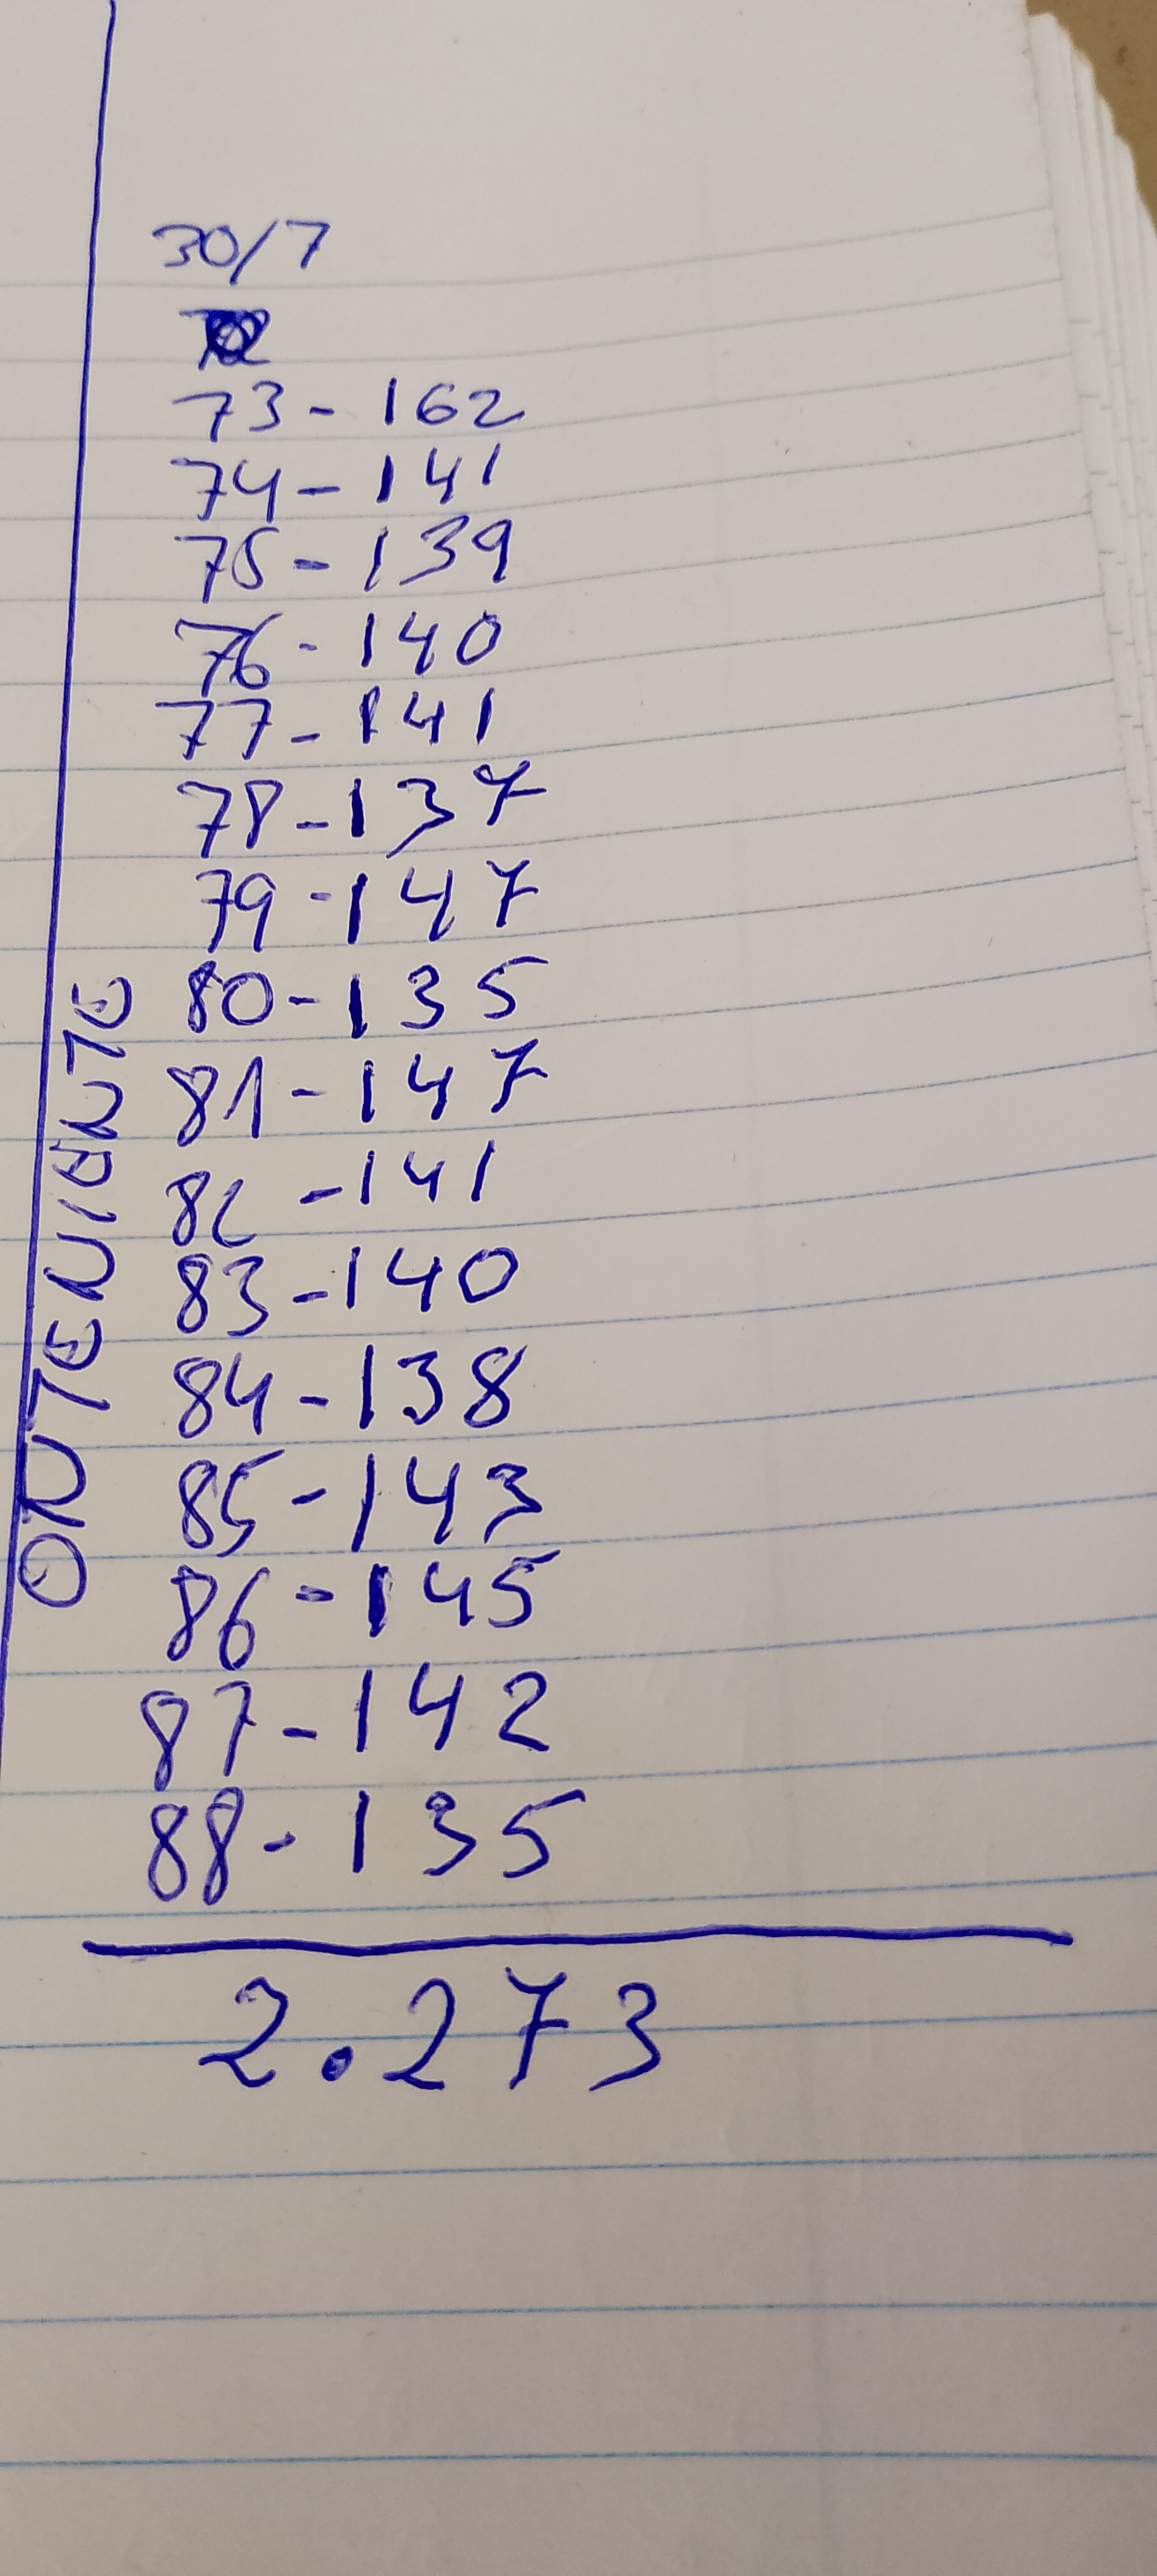 30/7
73 - 162
74 - 141
75 - 139
76 - 140
77 - 141
78 - 137
79 - 147
80 - 135
81 - 147
82 - 141
83 - 140
84 - 138
85 - 143
86 - 145
87 - 142
88 - 135
2.273